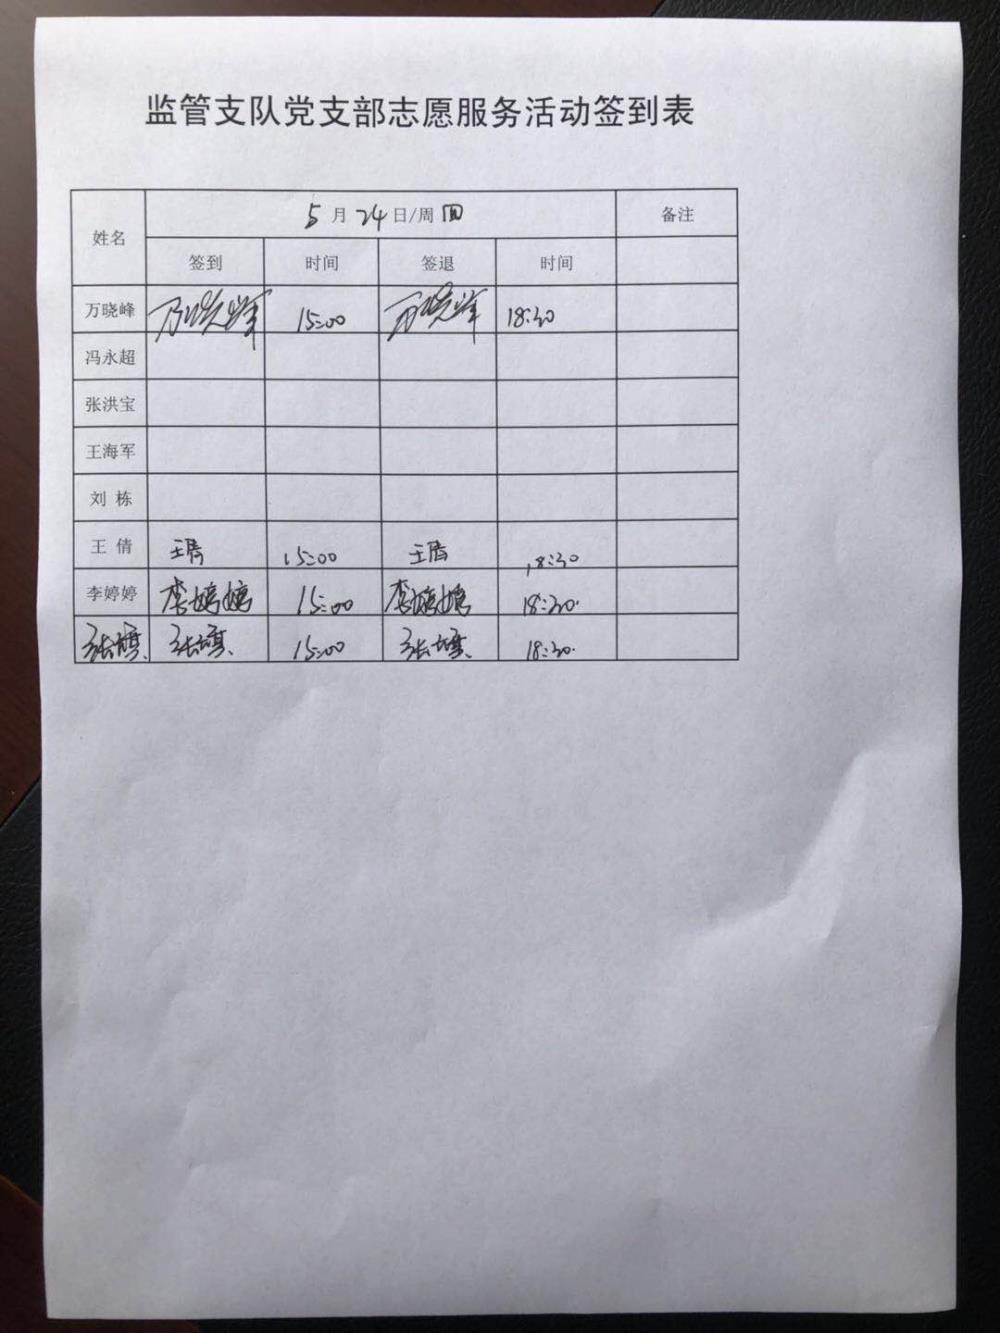 监管支队党支部志愿服务活动签到表
姓名 5月24日/周四 备注
签到 时间 签退 时间
万晓峰 万晓峰 15:00 万晓峰 18:30
冯永超
张洪宝
王海军
刘 栋
王 倩 王倩 15:00 王倩 18:30
李婷婷 李婷婷 15:00 李婷婷 18:30
15:00 18:30